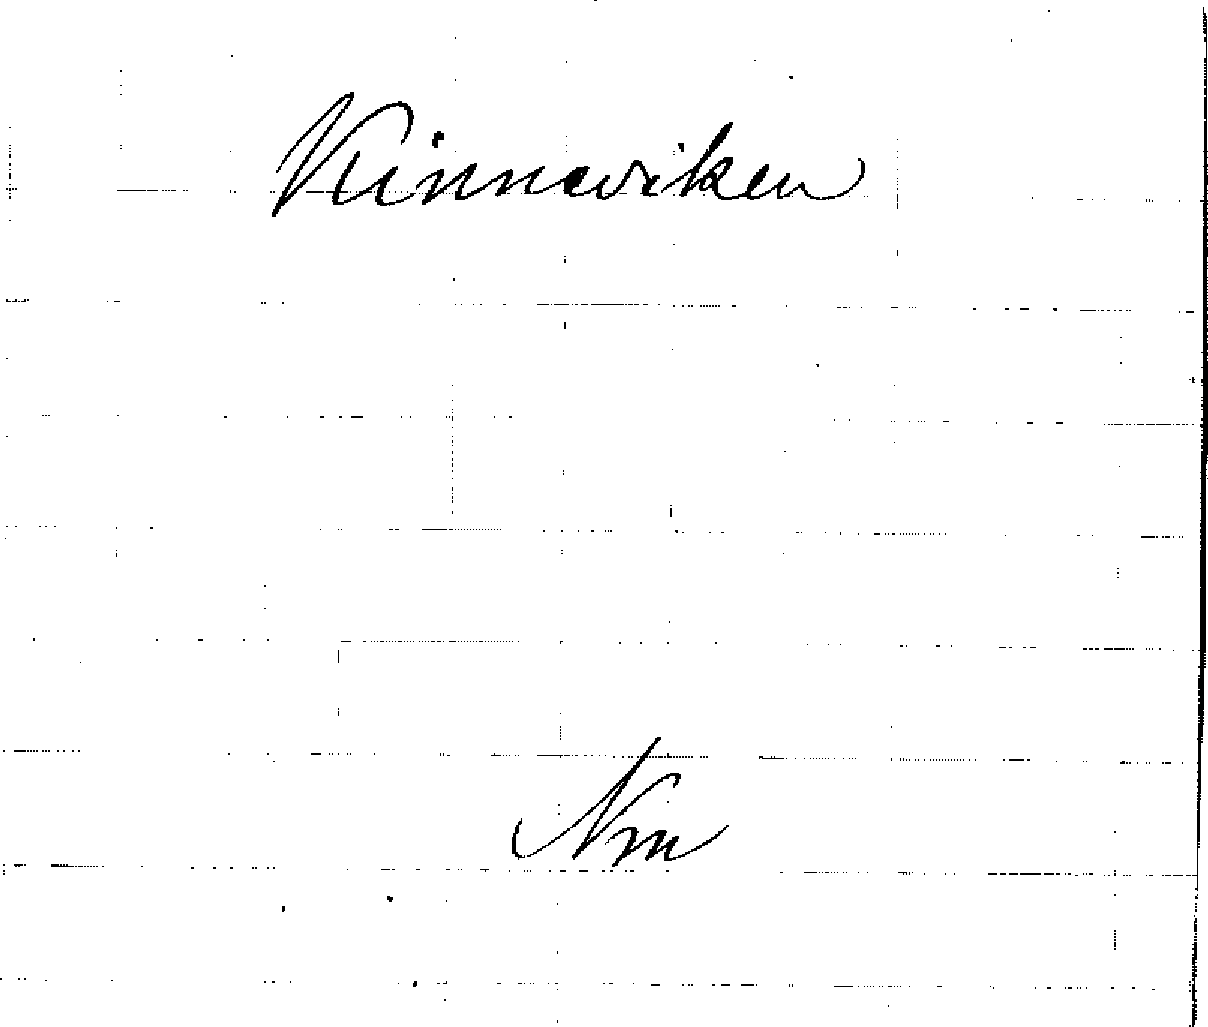 Kinneviken
Nm